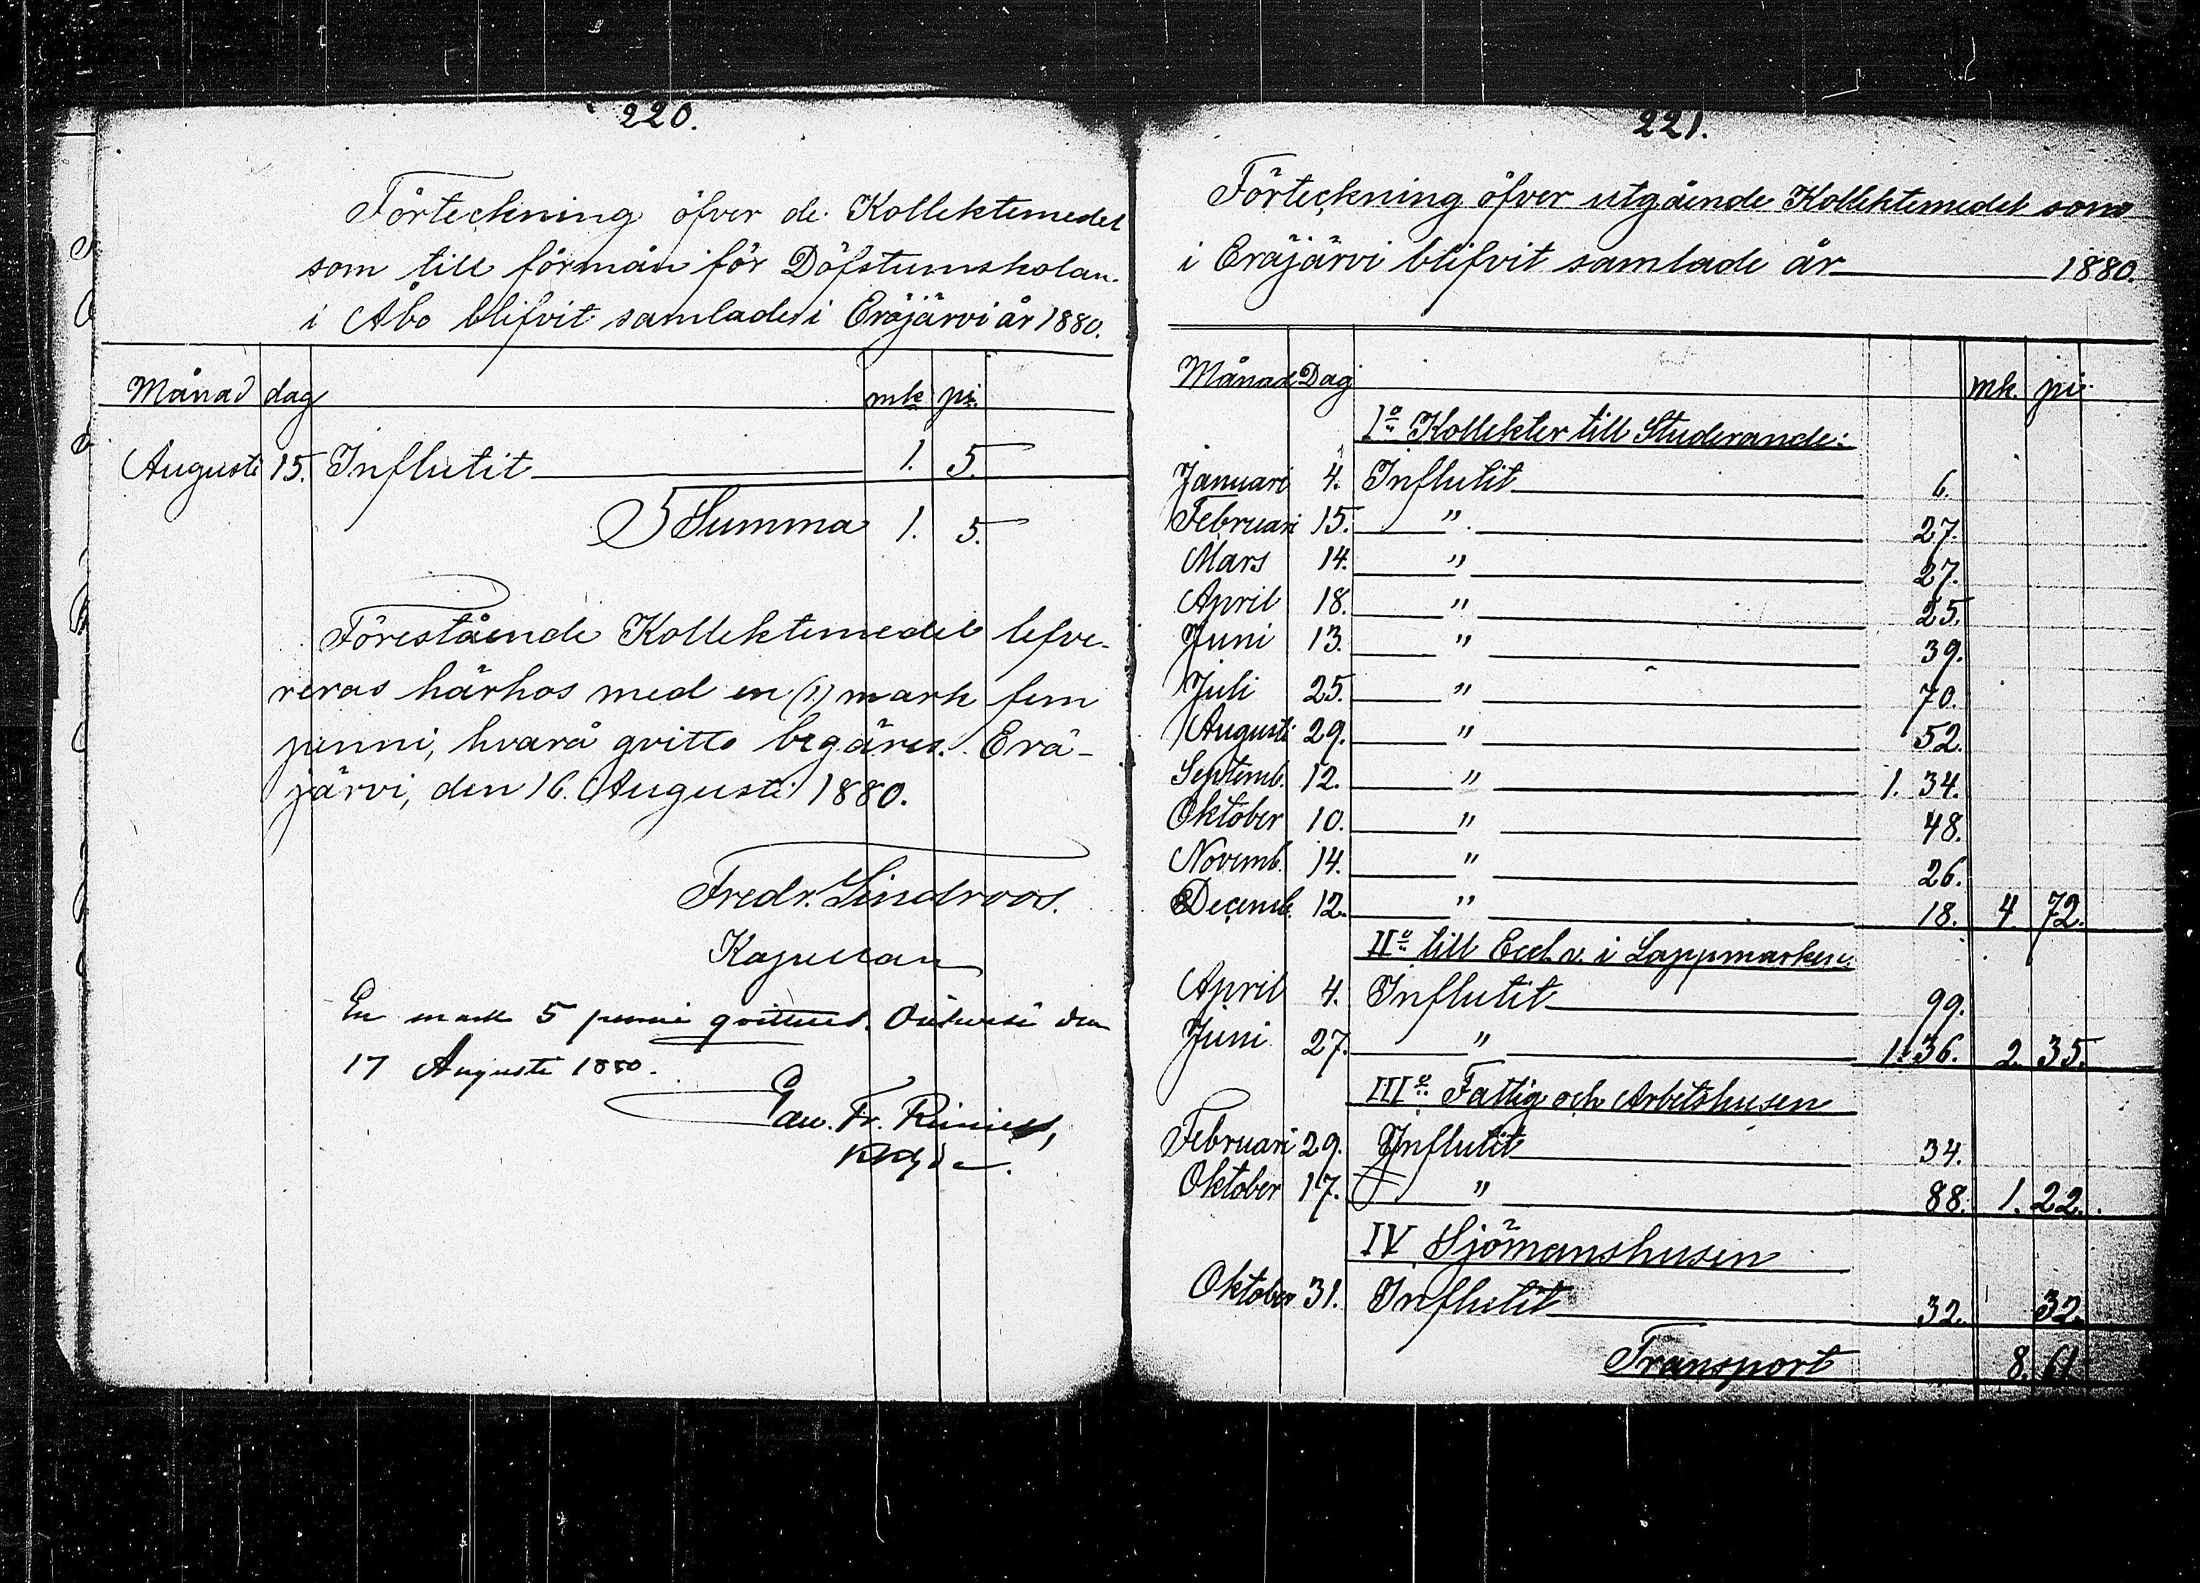 220.
Förteckning öfver de Kollektemedel
som till förmån för Döfstumskolan
i Åbo blifvit samlade i Eräjärvi år 1880.
Månad dag mk pi.
Augusti 15. Influtit 1. 5.
Summa 1. 5.
Förestående Kollektemedel lefve-
reras härhos med en (1) mark fem
penni, hvarå qvitto begäres. Erä-
järvi, den 16. Augusti 1880.
Fredr. Lindroos.
Kapellan
En mark 5 penni qvitteras. Orihvesi den
17 Augusti 1880.
Fr.
221.
Förteckning öfver utgående Kollektemedel som
i Eräjärvi blifvit samlade år 1880.
Månad Dag mk. pi
Io Kollekter till Studerande:
Januari 4. Influtit 6.
Februari 15. " 27.
Mars 14. " 27.
April 18. " 25.
Juni 13. " 39.
Juli 25. " 70.
Augusti 29. " 52.
Septemb. 12. " 1. 34.
Oktober 10. " 48.
Novemb. 14. " 26.
Decemb. 12. " 18. 4. 72.
IIo till Eccl. v. i Lappmarken
April 4. Influtit 99.
Juni 27. " 1. 36. 2. 35.
IIIo Fattig och Arbetshusen
Februari 29. Influtit 34.
Oktober 17. " 88. 1. 22.
IV Sjömanshusen
Oktober 31. Influtit 32. 32.
Transport 8. 61